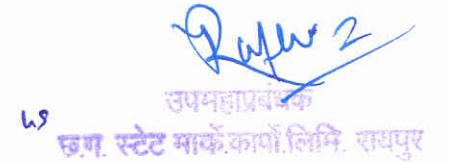 उपमहाप्रबंधक
छ.ग. स्टेट मार्के.कार्पो.लिमि. रायपुर